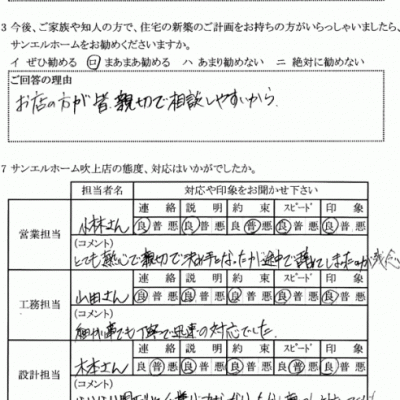 3 今後、ご家族や知人の方で、住宅の新築のご計画をお持ちの方がいらっしゃいましたら、
サンエルホームをお勧めくださいますか。
イ ぜひ勧める ロ まあまあ勧める ハ あまり勧めない ニ 絶対に勧めない
ご回答の理由
お店の方が皆、親切で相談しやすいから。
7 サンエルホーム吹上店の態度、対応はいかがでしたか。
担当者名 対応や印象をお聞かせ下さい
営業担当 小林さん 連絡 説明 約束 スピード 印象
良 普 悪 良 普 悪 良 普 悪 良 普 悪 良 普 悪
(コメント)
とても熱心で親切で
工務担当 山田さん 連絡 説明 約束 スピード 印象
良 普 悪 良 普 悪 良 普 悪 良 普 悪 良 普 悪
(コメント)
細かい事でも丁寧で迅速の対応でした。
設計担当 木本さん 連絡 説明 約束 スピード 印象
良 普 悪 良 普 悪 良 普 悪 良 普 悪 良 普 悪
(コメント)